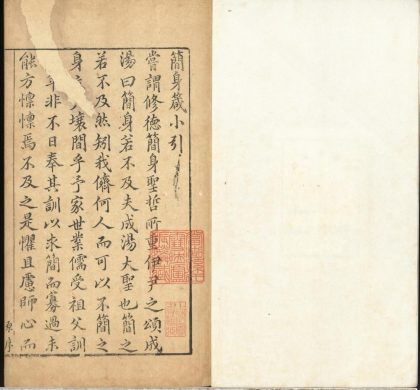 簡身箴小引
嘗謂修德簡身聖哲所重伊尹之頌成
湯曰簡身若不及夫成湯大聖也簡之
若不及然矧我儕何人而可以不簡之
身 壤間乎予家世業儒受祖父訓
年非不日奉其訓以求簡而寡過未
能方慄慄焉不及之是懼且慮師心而